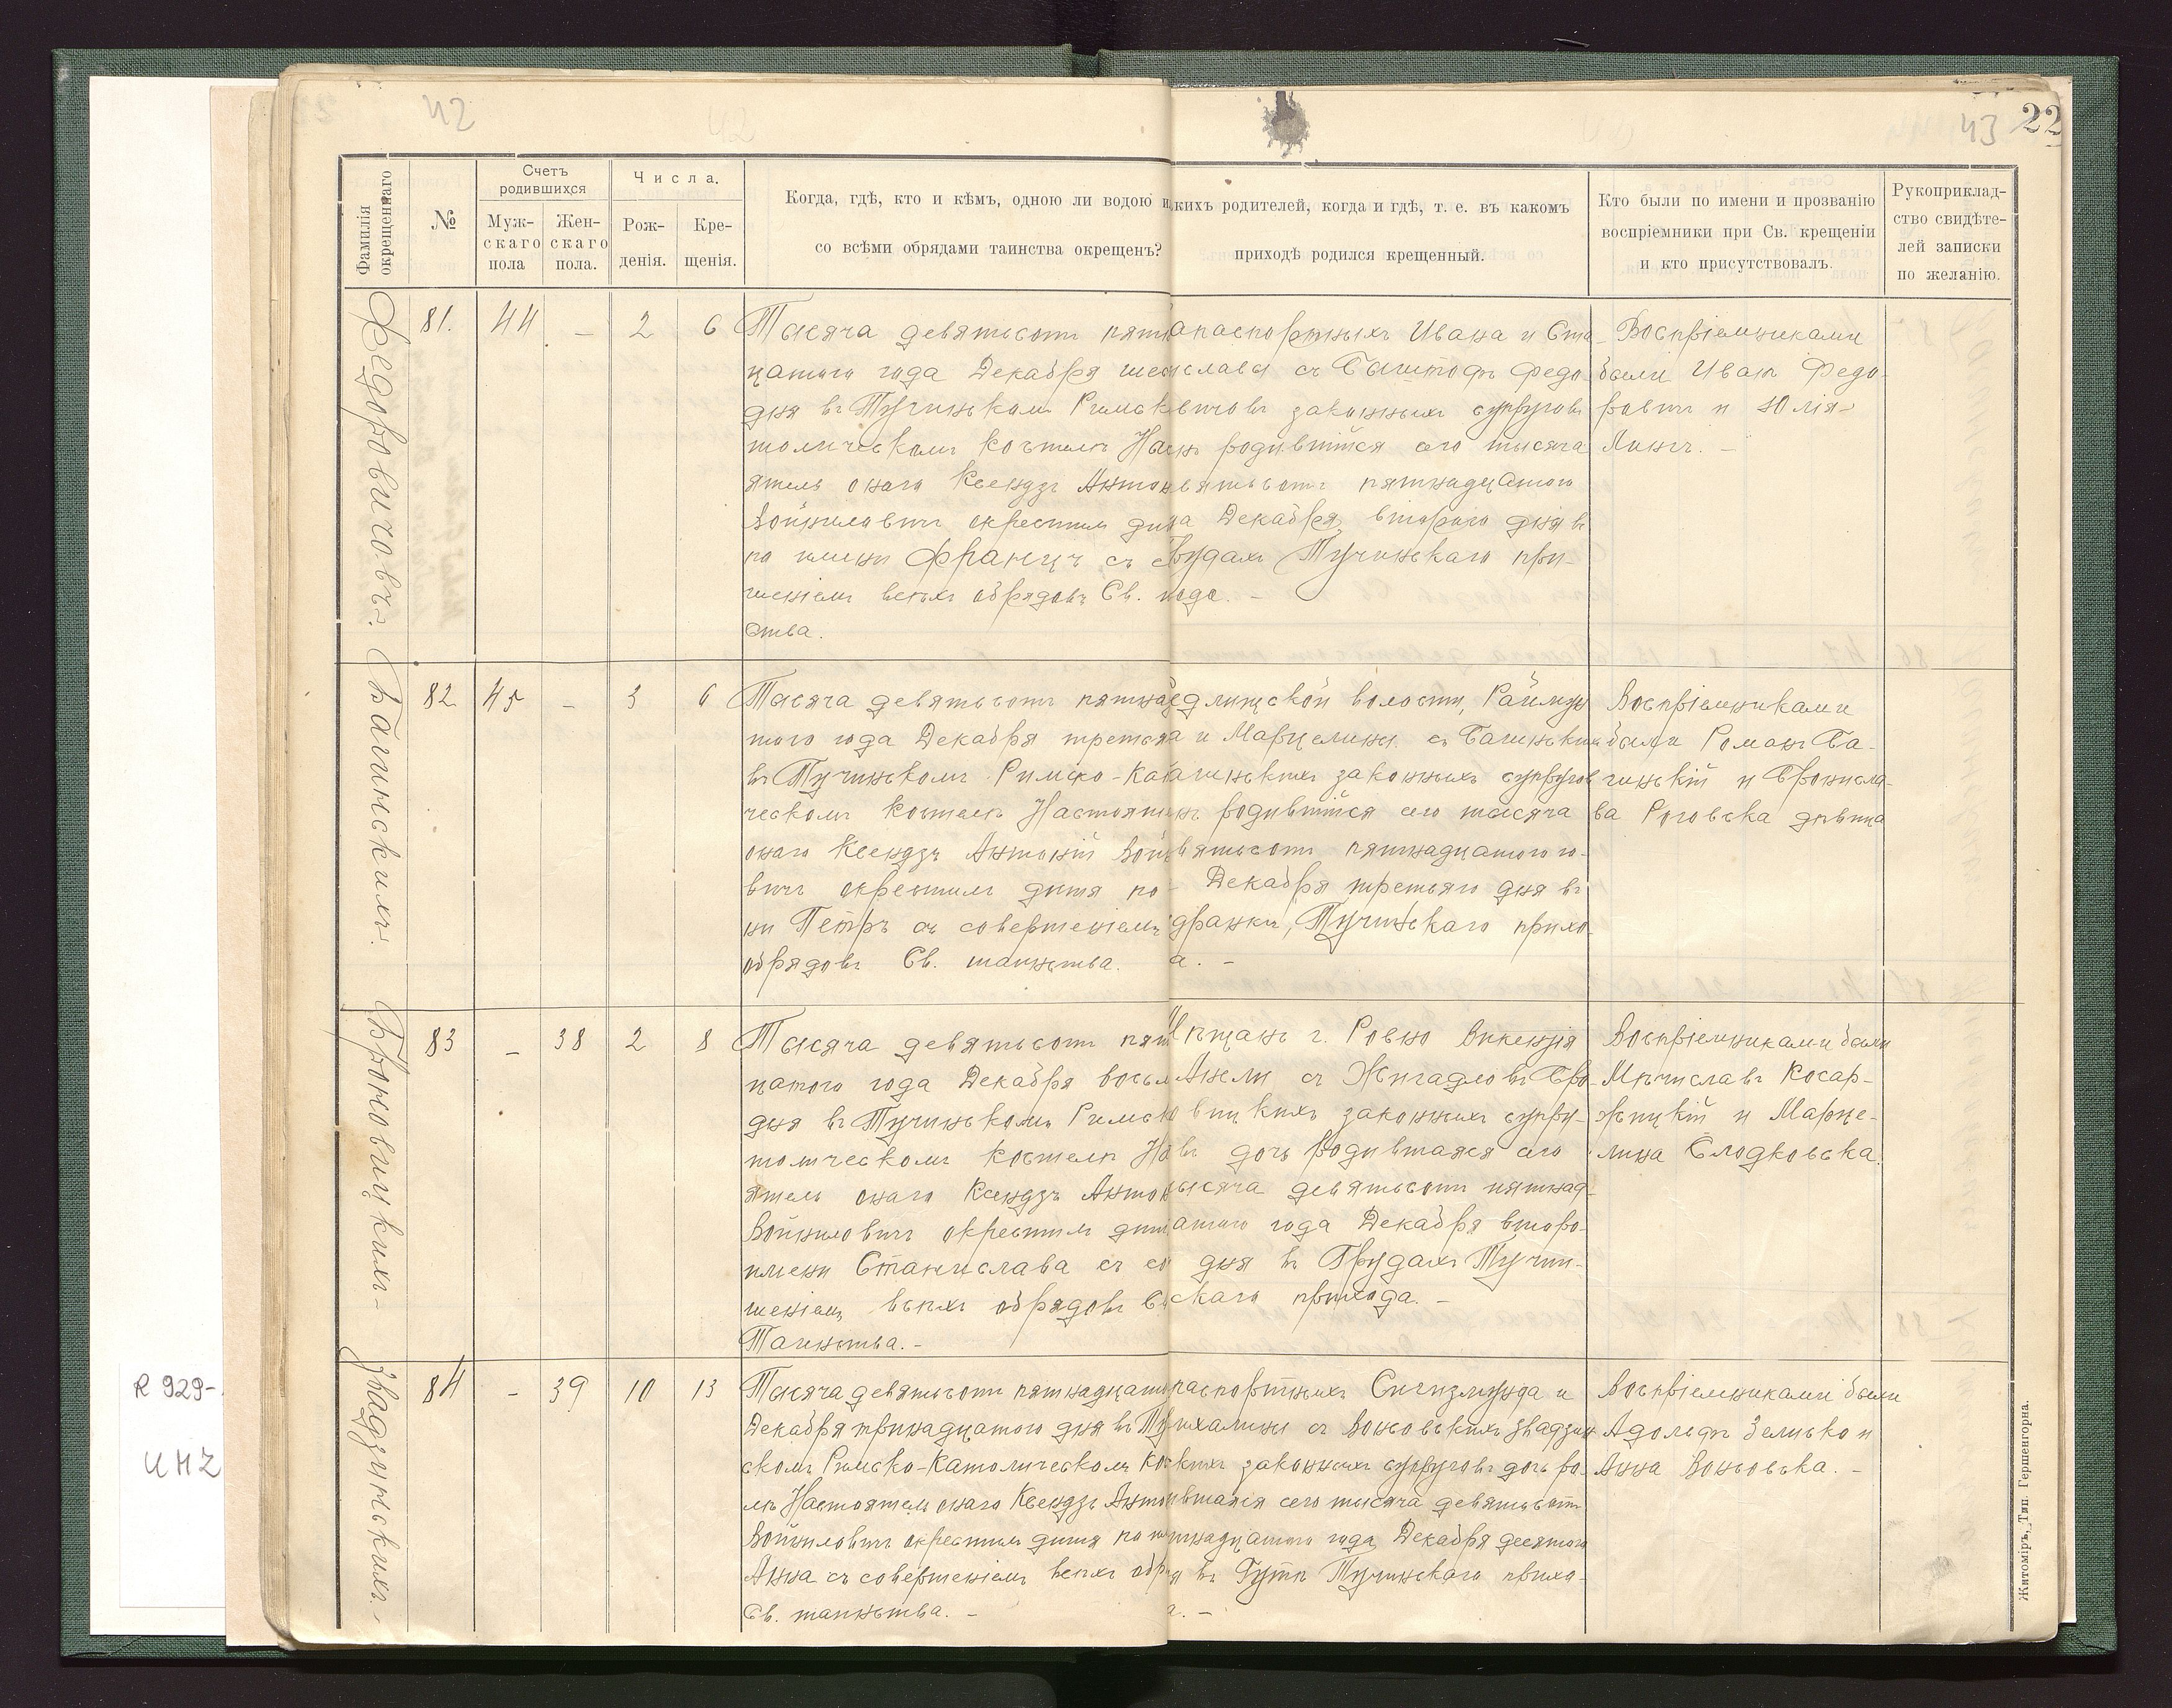 42
43
22
Фамилія окрещеннаго
№
Счетъ родившихся
Муж-
скаго
пола
Жен-
скаго
пола.
Числа.
Рож-
денія.
Кре-
щенія.
Когда, гдѣ, кто и кѣмъ, одною ли водою и
со всѣми обрядами таинства окрещенъ?
кихъ родителей, когда и гдѣ, т. е. въ какомъ
приходѣ родился крещенный.
Кто были по имени и прозванію
воспріемники при Св. крещеніи
и кто присутствовалъ.
Рукоприклад-
ство свидѣте-
лей записки
по желанію.
Федоровичовъ.
81. 44 – 2 6
Тысяча девятьсотъ пятн
цатого года Декабря шес
дня въ Тучинскомъ Римск
толическомъ костелѣ Нас
ятель онаго Ксендзъ Антон
Войнилович окрестилъ дит
по имени Францъ, съ с
шеніемъ всѣхъ обрядовъ Св. т
ства.
апаспортныхъ Ивана и Ста
иславы съ Быштофъ Федо-
вичовъ законныхъ супруговъ
нъ родившійся сего тысяча
вятьсотъ пятнадцатого
а Декабря второго дня въ
Грудахъ Тучинскаго при-
хода. –
Воспріемниками
были Иванъ Федо-
ровичъ и Юлія
Линкъ. –
Багинскихъ.
82 45 – 3 6
Тысяча девятьсотъ пятнад
того года Декабря третья
въ Тучинскомъ Римско-Кат
ческомъ костелѣ Настоят
онаго Ксендзъ Антоній Вой
вичъ окрестилъ дитя по
ни Петръ съ совершеніемъ
обрядовъ Св. таинства.
едлищской волости, Раймун
а и Марцелины съ Багински
агинскихъ законныхъ супругов
нъ родившійся сего тысяча
вятьсотъ пятнадцатого го-
Декабря третьяго дня въ
дранки, Тучинскаго прихо
а. –
Воспріемниками
были Романъ Ба-
гинскій и Бронисла-
ва Роговска дѣвица
Броновицкихъ –
83 – 38 2 8
Тысяча девятьсотъ пят
цатого года Декабря восьм
дня въ Тучинскомъ Римск
толическомъ костелѣ На
ятель онаго Ксендзъ Антон
Войнилович окрестилъ дит
имени Станислава съ со
шеніемъ всѣхъ обрядовъ Св
Таинства. –
ѣщанъ г. Ровно Викенція
Анели съ Жигадловъ Бро-
овицкихъ законныхъ супру-
въ дочь родившаяся сего
ысяча девятьсотъ пятнад-
атого года Декабря второ-
дня въ Грудахъ Тучин-
скаго прихода. –
Воспріемниками были
Мѣчиславъ Косар-
жицкій и Марце-
лина Слодковска.
Звадзинскихъ. –
84 – 39 10 13
Тысяча девятьсотъ пятнадцато
Декабря тринадцатого дня въ Ту
скомъ Римско-Католическомъ Кос
лѣ Настоятель онаго Ксендзъ Антон
Войнилович окрестилъ дитя по и
Анна съ совершеніемъ всѣхъ обр
Св. таинства. –
паспортныхъ Сигизмунда и
ихалины съ Воньовскихъ Звадзин
кихъ законныхъ супруговъ дочь ро-
ившаяся сего тысяча девятьсотъ
тнадцатого года Декабря десятого
я въ Гутѣ Тучинскаго прихо-
а. –
Воспріемниками были
Адольфъ Зелинко и
Анна Воньовска. –
R 929-
ИНZ
Житоміръ, Тип. Гершенгорна.